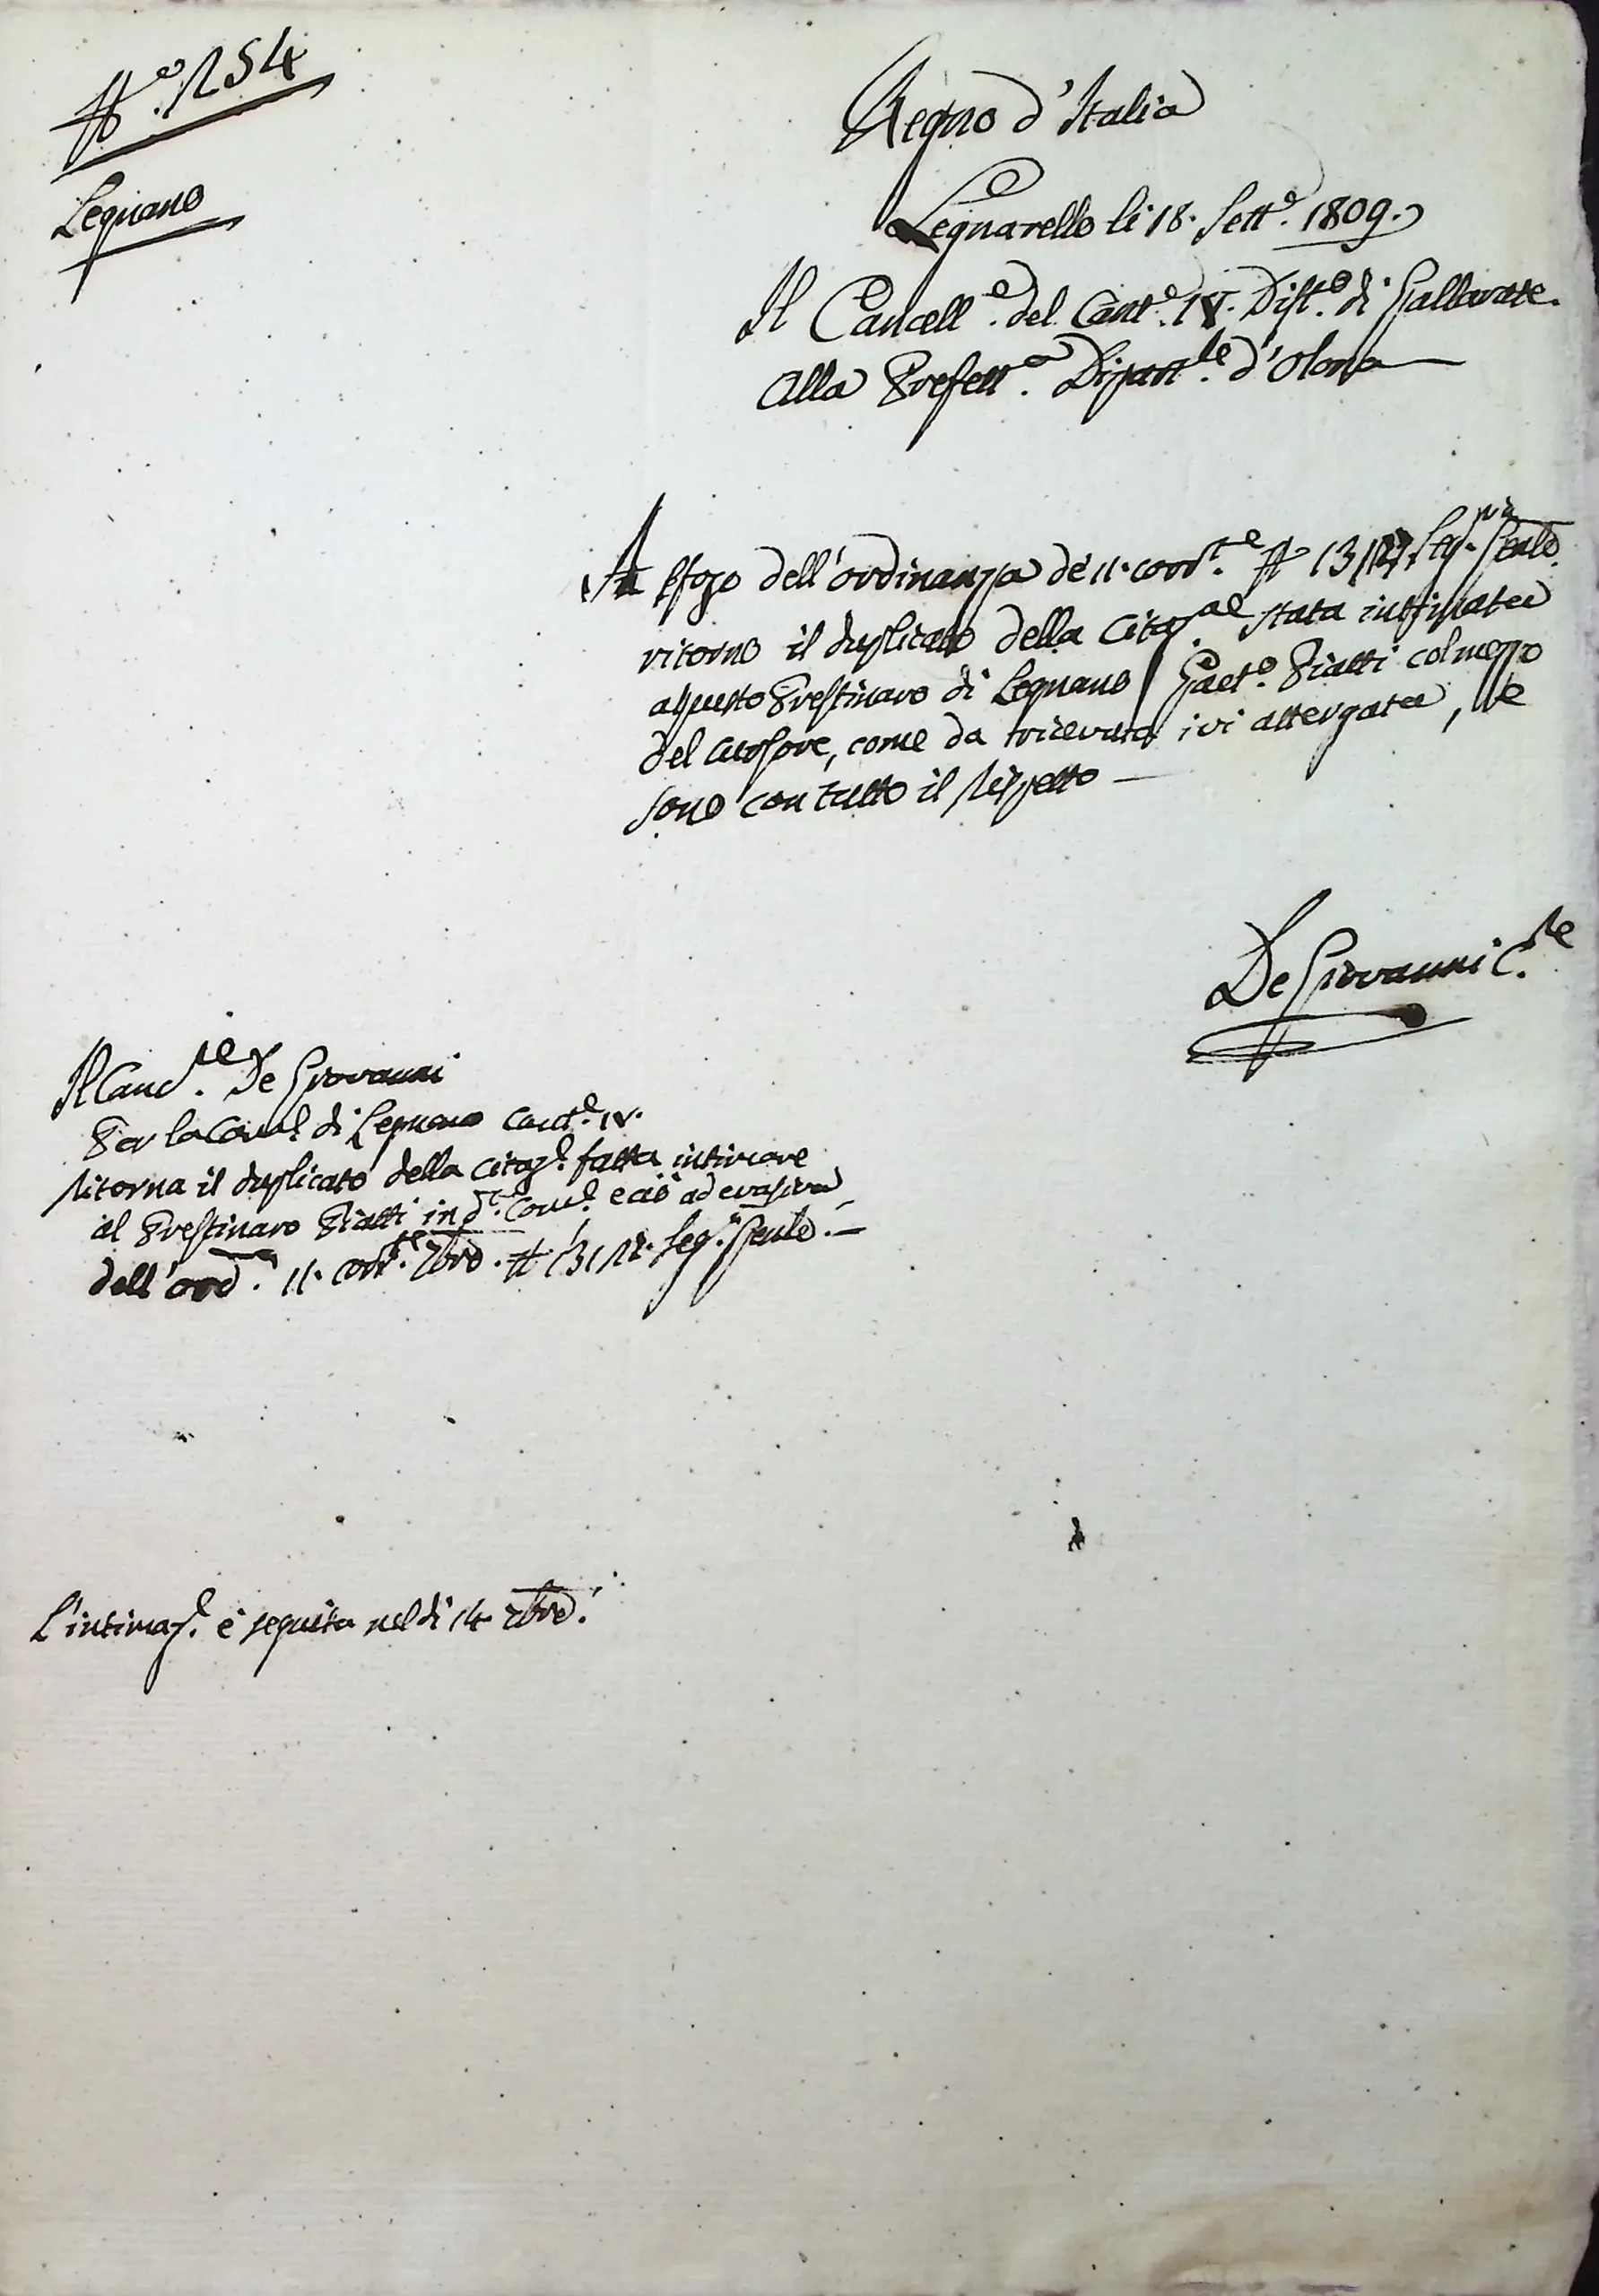 N.º 1254
Legnano
Regno d'Italia
Legnarello li 18. Sett.e 1809.
Il Cancell.e del Cant.e IV. Dist.o di Gallarate.
Alla Prefett.a Dipart.le d'Olona
In sfogo dell'ordinanza de' 11. corr.te N.º
ritorno il duplicato della Citaz.ne stata intimata
a questo Prestinaro di Legnano Gaet.o Piatti col mezzo
del Cursore, come da ricevuta ivi attergata, e
sono con tutto il rispetto
De Giovanni C.re
Il Canc.re De Giovanni
Per la Com.e di Legnano Cant.e IV.
ritorna il duplicato della Citaz.e fatta intimare
al Prestinaro Piatti in d.a Com.e e ciò ad evasione
dell'ord.a 11. corr.te 7bre. N.
L'intimaz.e è seguita nel dì 14 7bre.